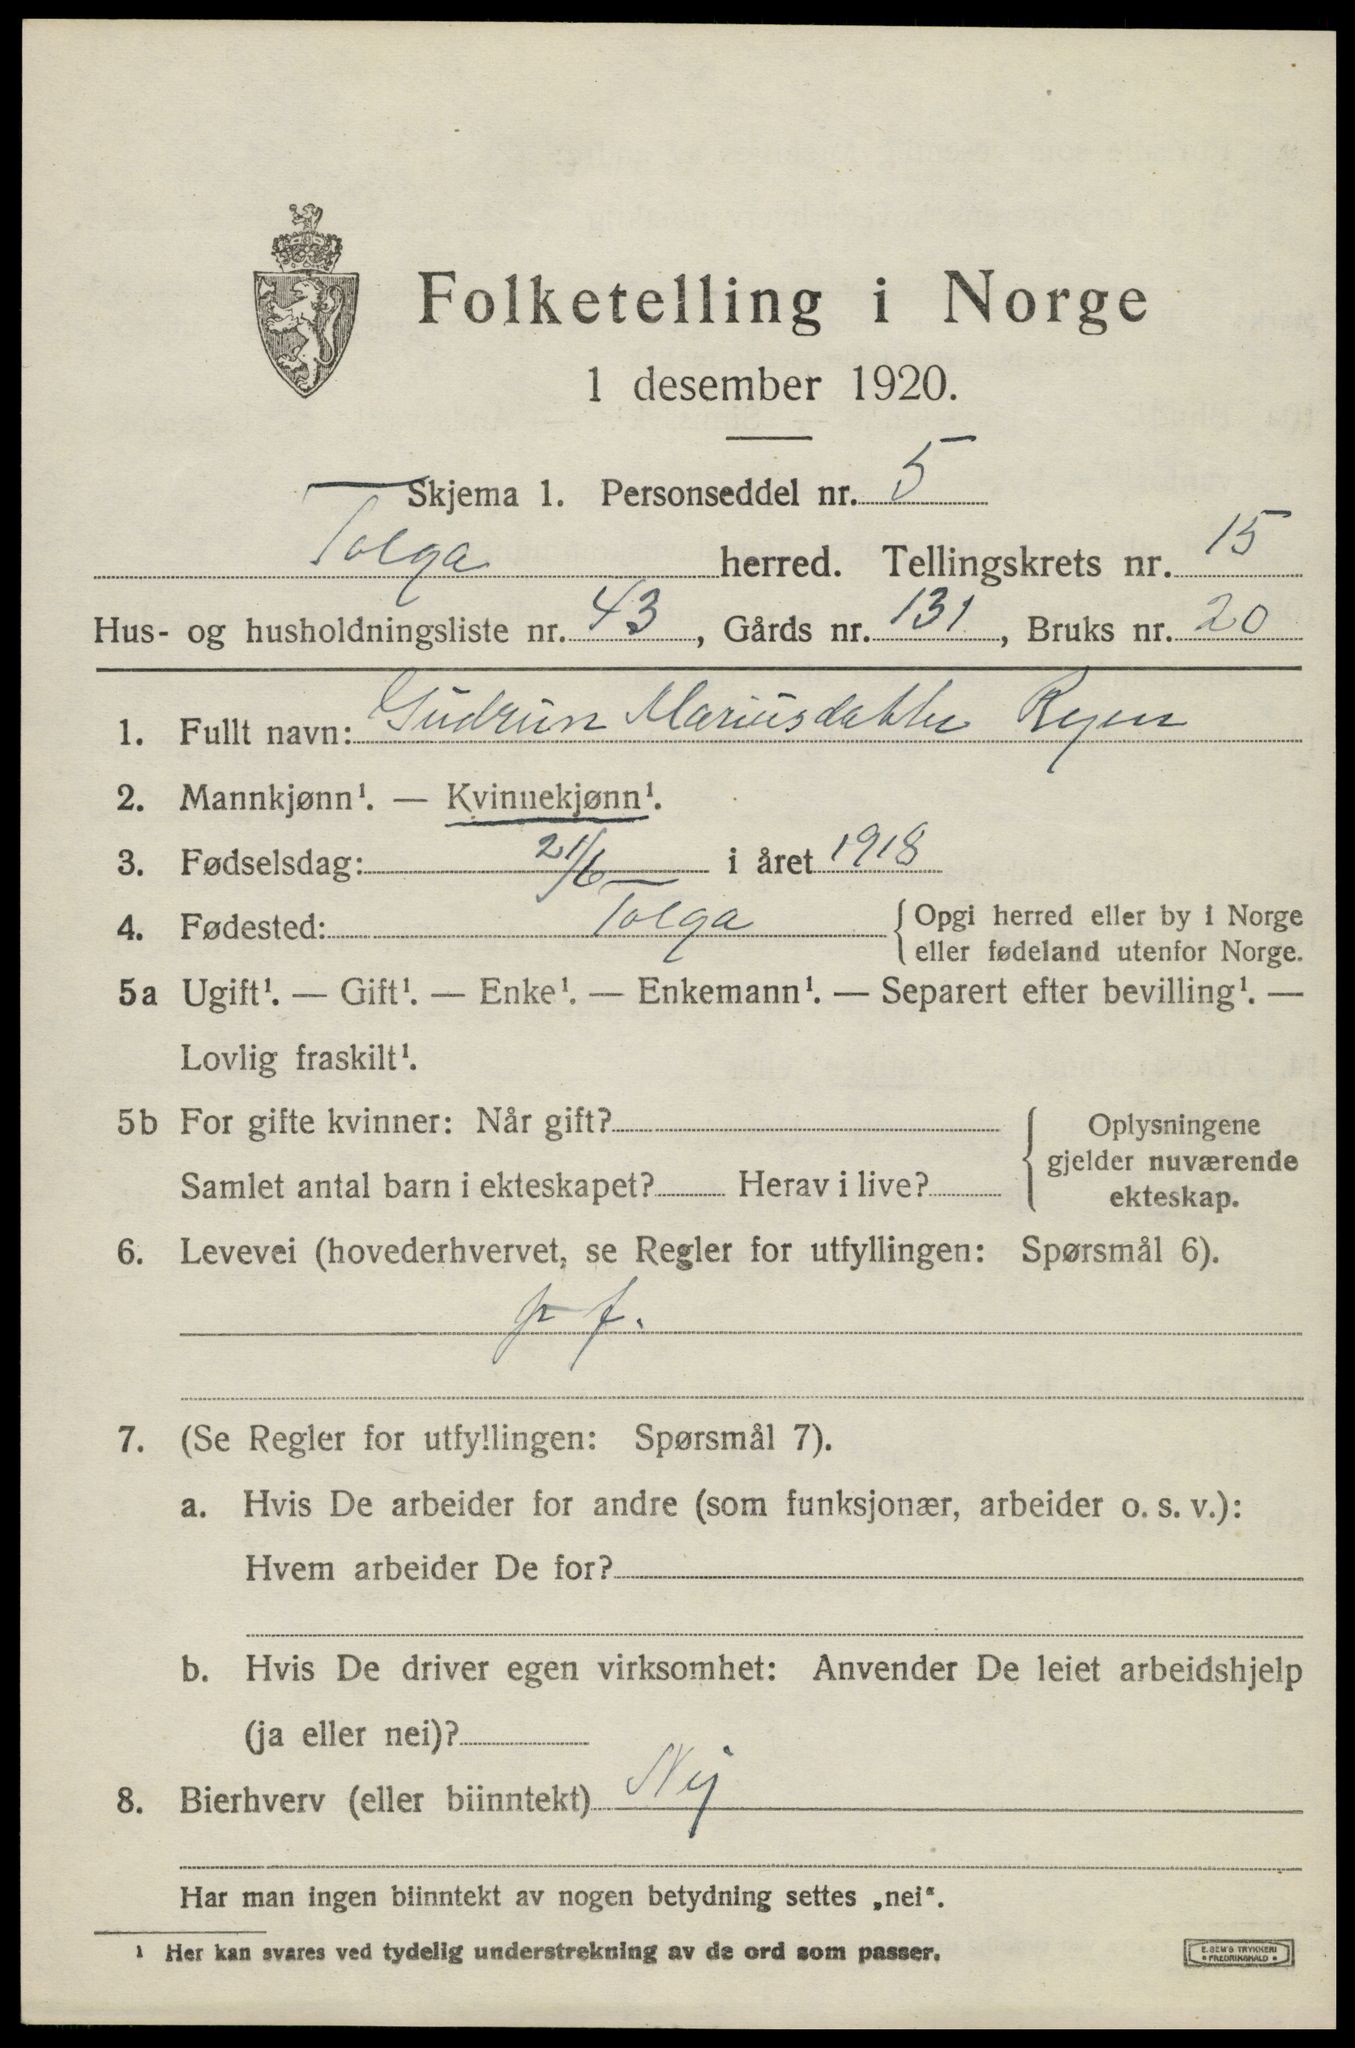 Folketelling i Norge
1 desember 1920.
Skjema 1. Personseddel nr. 5
Tolga herred. Tellingskrets nr. 15
Hus- og husholdningsliste nr. 43, Gårds nr. 131, Bruks nr. 20
1. Fullt navn: Gudrun Mariusdatter Ryen
2. Mannkjønn¹. — Kvinnekjønn¹.
3. Fødselsdag: 21/6 i året 1918
4. Fødested: Tolga { Opgi herred eller by i Norge
eller fødeland utenfor Norge.
5a Ugift¹. — Gift¹. — Enke¹. — Enkemann¹. — Separert efter bevilling¹. —
Lovlig fraskilt¹.
5b For gifte kvinner: Når gift?
Samlet antal barn i ekteskapet? Herav i live?
Oplysningene
gjelder nuværende
ekteskap.
6. Levevei (hovederhvervet, se Regler for utfyllingen: Spørsmål 6).
f.
7. (Se Regler for utfyllingen: Spørsmål 7).
a. Hvis De arbeider for andre (som funksjonær, arbeider o. s. v.):
Hvem arbeider De for?
b. Hvis De driver egen virksomhet: Anvender De leiet arbeidshjelp
(ja eller nei)?
8. Bierhverv (eller biinntekt) Nej
Har man ingen biinntekt av nogen betydning settes „nei“.
¹ Her kan svares ved tydelig understrekning av de ord som passer.
E. SEM'S TRYKKERI
FREDRIKSHALD